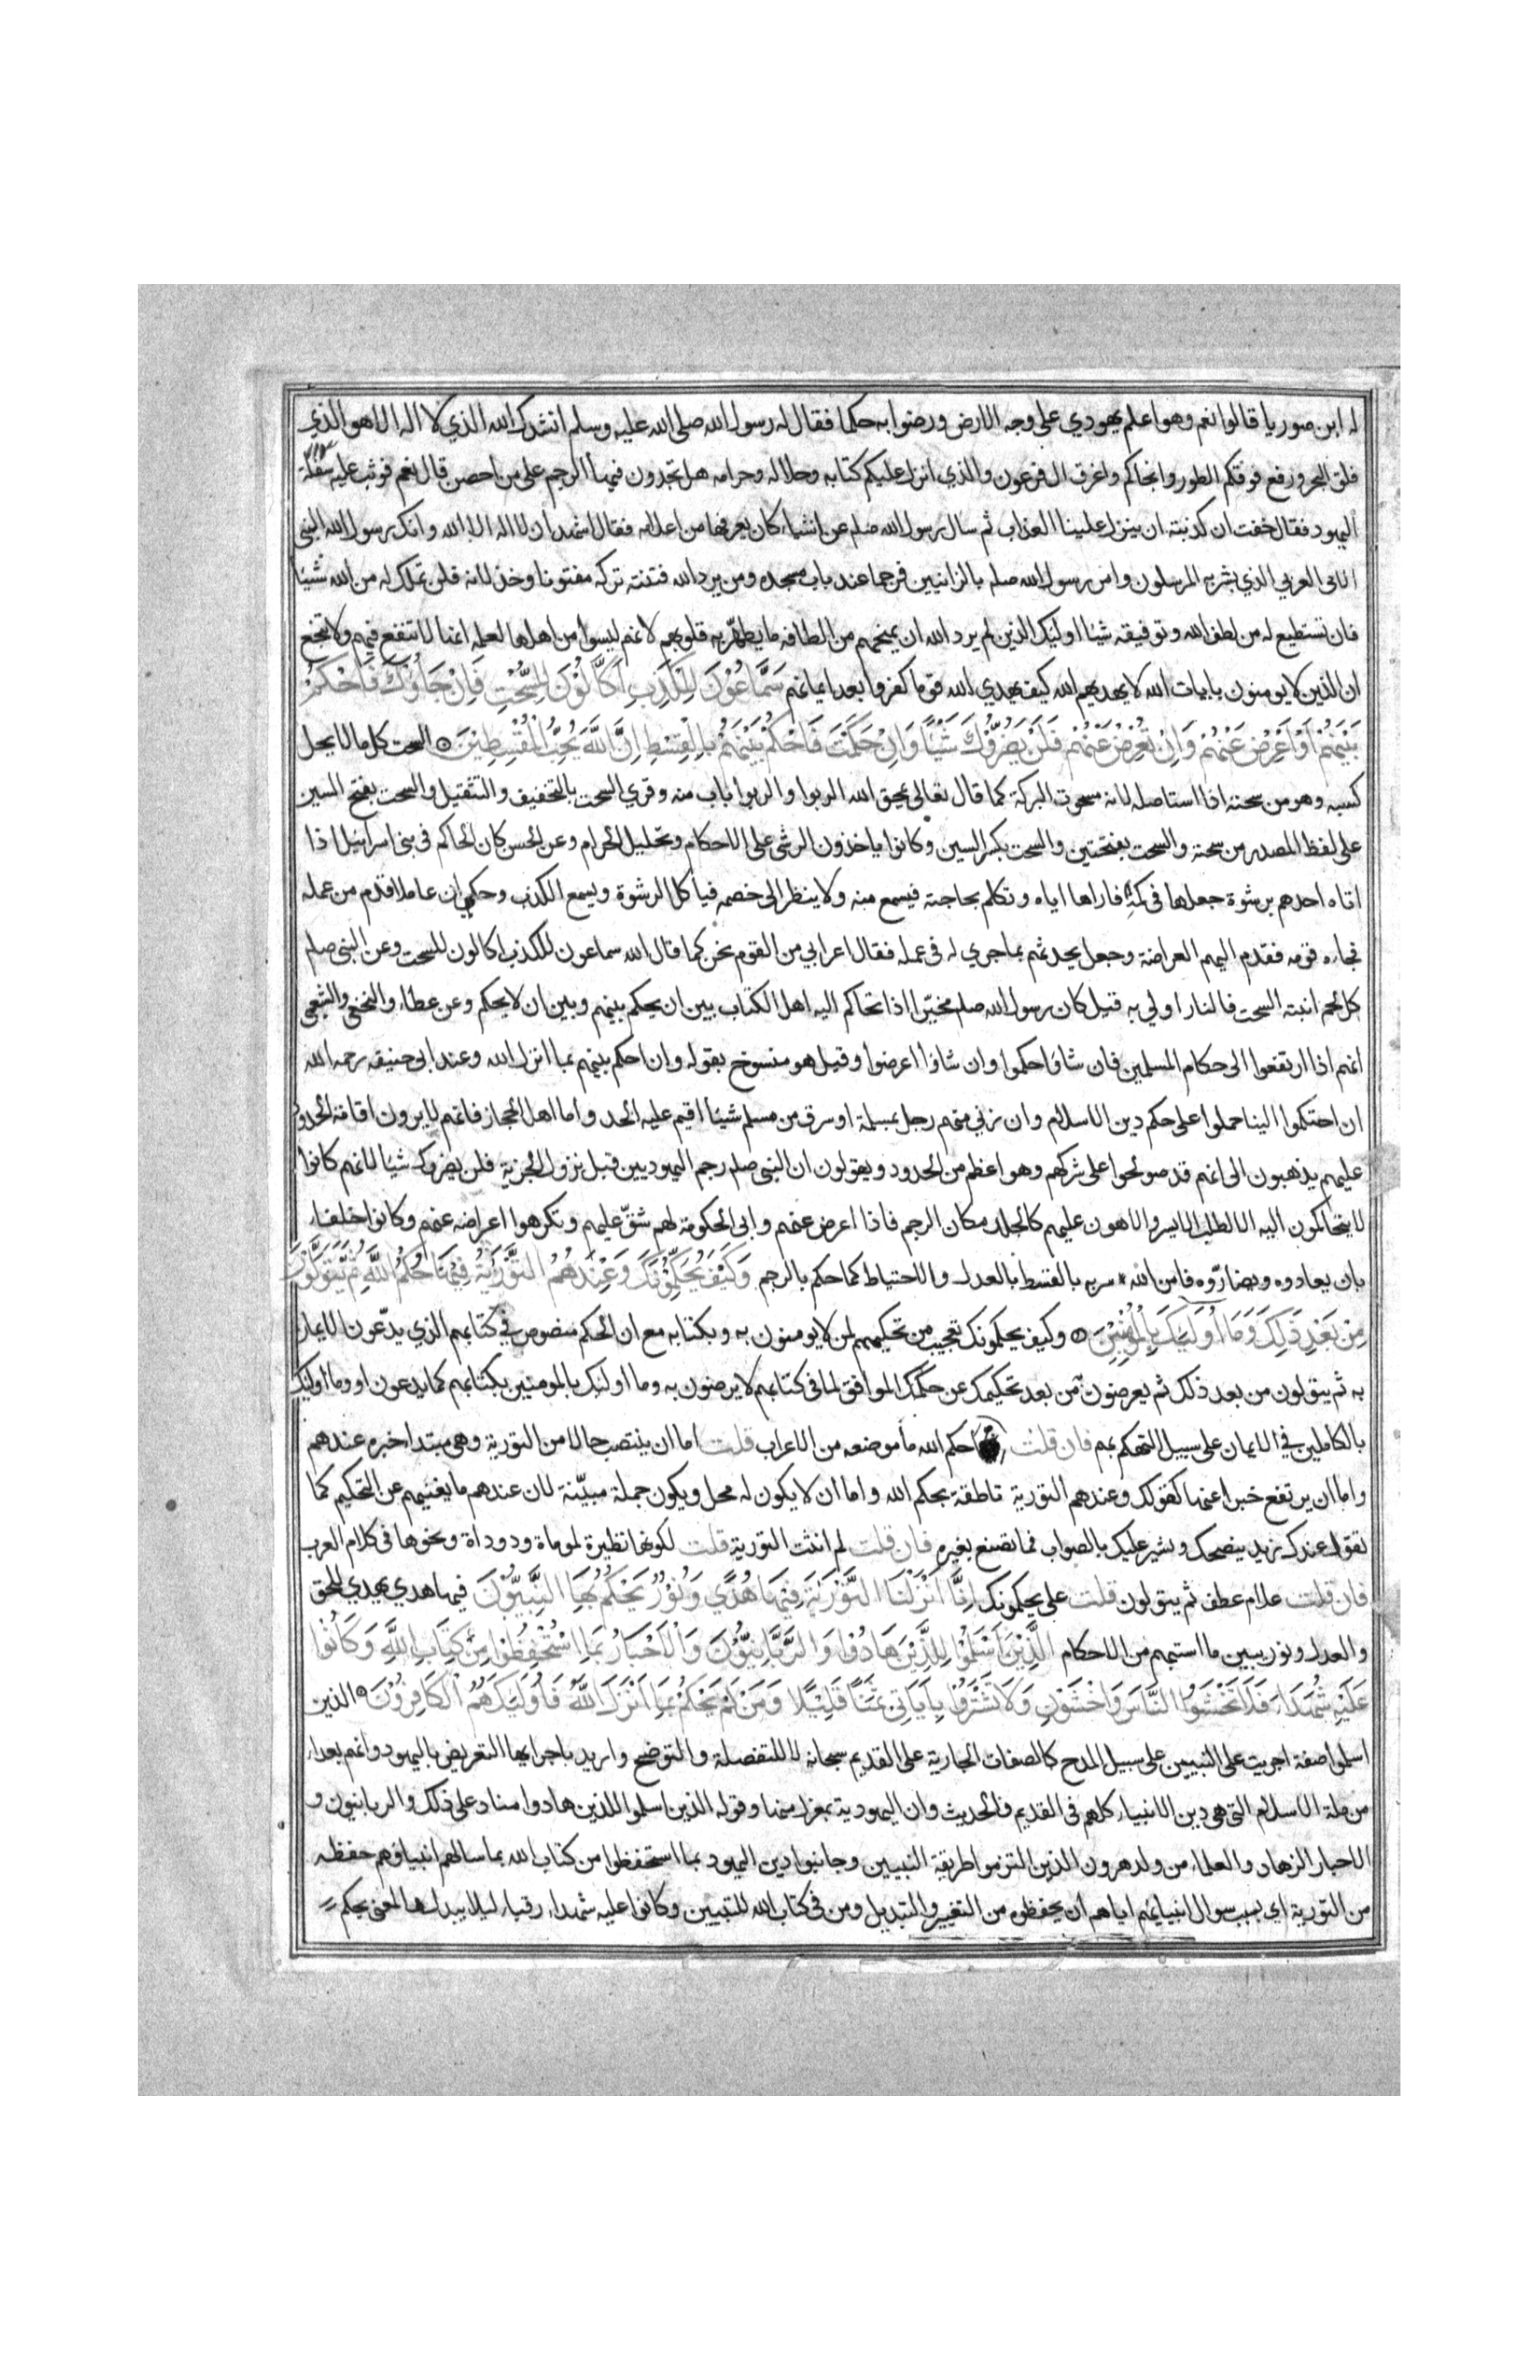 له ابن صوريا قالوا نعم وهو اعلم يهودي على وجه الارض ورضوا به حكما فقال له رسول الله صلى الله عليه وسلم انشدك الله الذي لا اله الا هو الذي
فلق البحر ورفع فوقكم الطور وانجاكم واغرق ال فرعون والذي انزل عليكم كتابه وحلاله وحرامه هل تجدون فيها الرجم على من احصن قال نعم فوثب عليه سفلة
اليهود فقال خفت ان كذبته ان ينزل علينا العذاب ثم سال رسول الله صلم عن اشياء كان يعرفها من اعلامه فقال اشهد ان لا اله الا الله وانك رسول الله النبي
الامي العربي الذي بشر به المرسلون وامر رسول الله صلم بالزانيين فرجما عند باب مسجده ومن يرد الله فتنته تركه مفتونا وخذلانه فلن تملك له من الله شيئا
فان تستطيع له من لطف الله وتوفيقه شيئا اوليك الذين لم يرد الله ان يمنحهم من الطافه ما يطهر به قلوبهم لانهم ليسوا من اهلها لعلمه انها لا تنفع فيهم ولا تنجع
ان الذين لا يومنون بايات الله لا يهديهم الله كيف يهدي الله قوما كفروا بعد ايمانهم سَمَّاعُوْنَ لِلْكَذِبِ اَكَّالُوْنَ لِلسُّحْتِ فَاِنْ جَاؤُكَ فَاحْكُمْ
بَيْنَهُمْ اَوْ اَعْرِضْ عَنْهُمْ وَاِنْ تُعْرِضْ عَنْهُمْ فَلَنْ يَضُرُّوْكَ شَيْئًا وَاِنْ حَكَمْتَ فَاحْكُمْ بَيْنَهُمْ بِالْقِسْطِ اِنَّ اللَّهَ يُحِبُّ الْمُقْسِطِيْنَ ۝ السحت كل ما لا يحل
كسبه وهو من سحته اذا استاصله لانه مسحوت البركة كما قال تعالى يمحق الله الربوا والربوا باب منه وقري السحت بالتخفيف والتثقيل والسحت بفتح السين
على لفظ المصدر من سحته والسحت بفتحتين والسحت بكسر السين وكانوا ياخذون الرشى على الاحكام وتحليل الحرام وعن الحسن كان الحاكم في بني اسرائيل اذا
اتاه احدهم برشوة جعلها في كمه فاراها اياه وتكلم بحاجته فيسمع منه ولا ينظر الى خصمه فيا كل الرشوة ويسمع الكذب وحكي ان عاملا قدم من عمله
فجاءه قومه فقدم اليهم العراضة وجعل يحدثهم بما جري له في عمله فقال اعرابي من القوم نحن كما قال الله سماعون للكذب اكالون للسحت وعن النبي صلم
كل لحم انبته السحت فالنار اولي به قيل كان رسول الله صلم مخيرا اذا تحاكم اليه اهل الكتاب بين ان يحكم بينهم وبين ان لا يحكم وعن عطاء والنخعي والشعبي
انهم اذا ارتفعوا الى حكام المسلمين فان شاؤا حكموا وان شاؤا اعرضوا وقيل هو منسوخ بقوله وان احكم بينهم بما انزل الله وعند ابي حنيفه رحمه الله
ان احتكموا الينا حملوا على حكم دين الاسلام وان زني منهم رجل بمسلمة او سرق من مسلم شيئا اقيم عليه الحد واما اهل الحجاز فانهم لا يرون اقامة الحدود
عليهم يذهبون الى انهم قد صولحوا على شركهم وهو اعظم من الحدود ويقولون ان النبي صلم رجم اليهوديين قبل نزول الجزية فلن يضروك شيئا لانهم كانوا
لا يتحاكمون اليه الا لطلب الايسر والاهون عليهم كالجلد مكان الرجم فاذا اعرض عنهم وابى الحكومة لهم شق عليهم وتكرهوا اعراضه عنهم وكانوا خلفاء
بان يعادوه ويضاروه فامن الله سربه بالقسط بالعدل والاحتياط كما حكم بالرجم وَكَيْفَ يُحَكِّمُوْنَكَ وَعِنْدَهُمُ التَّوْرٰيةُ فِيْهَا حُكْمُ اللَّهِ ثُمَّ يَتَوَلَّوْنَ
مِنْ بَعْدِ ذٰلِكَ وَمَا اُولٰئِكَ بِالْمُؤْمِنِيْنَ ۝ وكيف يحكمونك تعجيب من تحكيمهم لمن لا يومنون به وبكتابه مع ان الحكم منصوص في كتابهم الذي يدعون الايمان
به ثم يتولون من بعد ذلك ثم يعرضون من بعد تحكيمك عن حكمك الموافق لما في كتابهم لا يرضون به وما اولئك بالمومنين بكتابهم كما يدعون او وما اولئك
بالكاملين في الايمان على سبيل التهكم بهم فان قلت فيها حكم الله ما موضعه من الاعراب قلت اما ان ينتصب حالا من التورية وهي مبتدا خبره عندهم
واما ان يرتفع خبرا عنها كقولك وعندهم التورية ناطقة بحكم الله واما ان لا يكون له محل ويكون جملة مبينة لان عندهم ما يغنيهم عن التحكيم كما
تقول عندك زيد ينصحك ويشير عليك بالصواب فما تصنع بغيره فان قلت لم انثت التورية قلت لكونها نظيرة لموماة ودوداة ونحوها في كلام العرب
فان قلت علام عطف ثم يتولون قلت على يحكمونك اِنَّا اَنْزَلْنَا التَّوْرٰيةَ فِيْهَا هُدًي وَنُوْرٌ يَحْكُمُ بِهَا النَّبِيُّوْنَ فيها هدي يهدي للحق
والعدل ونور يبين ما استبهم من الاحكام الَّذِيْنَ اَسْلَمُوْا لِلَّذِيْنَ هَادُوْا وَالرَّبَّانِيُّوْنَ وَالْاَحْبَارُ بِمَا اسْتُحْفِظُوْا مِنْ كِتَابِ اللَّهِ وَكَانُوْا
عَلَيْهِ شُهَدَاءَ فَلَا تَخْشَوُا النَّاسَ وَاخْشَوْنِ وَلَا تَشْتَرُوْا بِاٰيَاتِيْ ثَمَنًا قَلِيْلًا وَمَنْ لَمْ يَحْكُمْ بِمَا اَنْزَلَ اللَّهُ فَاُولٰئِكَ هُمُ الْكَافِرُوْنَ ۝ الذين
اسلموا صفة اجريت على النبيين على سبيل المدح كالصفات الجارية على القديم سبحانه لا للتفصلة والتوضيح واريد باجرايها التعريض باليهود وانهم بعداء
من ملة الاسلام التي هي دين الانبياء كلهم في القديم والحديث وان اليهودية بمعزل منها وقوله الذين اسلموا للذين هادوا مناد على ذلك والربانيون و
الاحبار الزهاد والعلماء من ولد هرون الذين التزموا طريقة النبيين وجانبوا دين اليهود بما استحفظوا من كتاب الله بما سالهم انبياؤهم حفظه
من التورية اي بسبب سوال انبيايهم اياهم ان يحفظوه من التغيير والتبديل ومن في كتاب الله للتبيين وكانوا عليه شهداء رقباء ليلا يبدل والمعنى يحكم